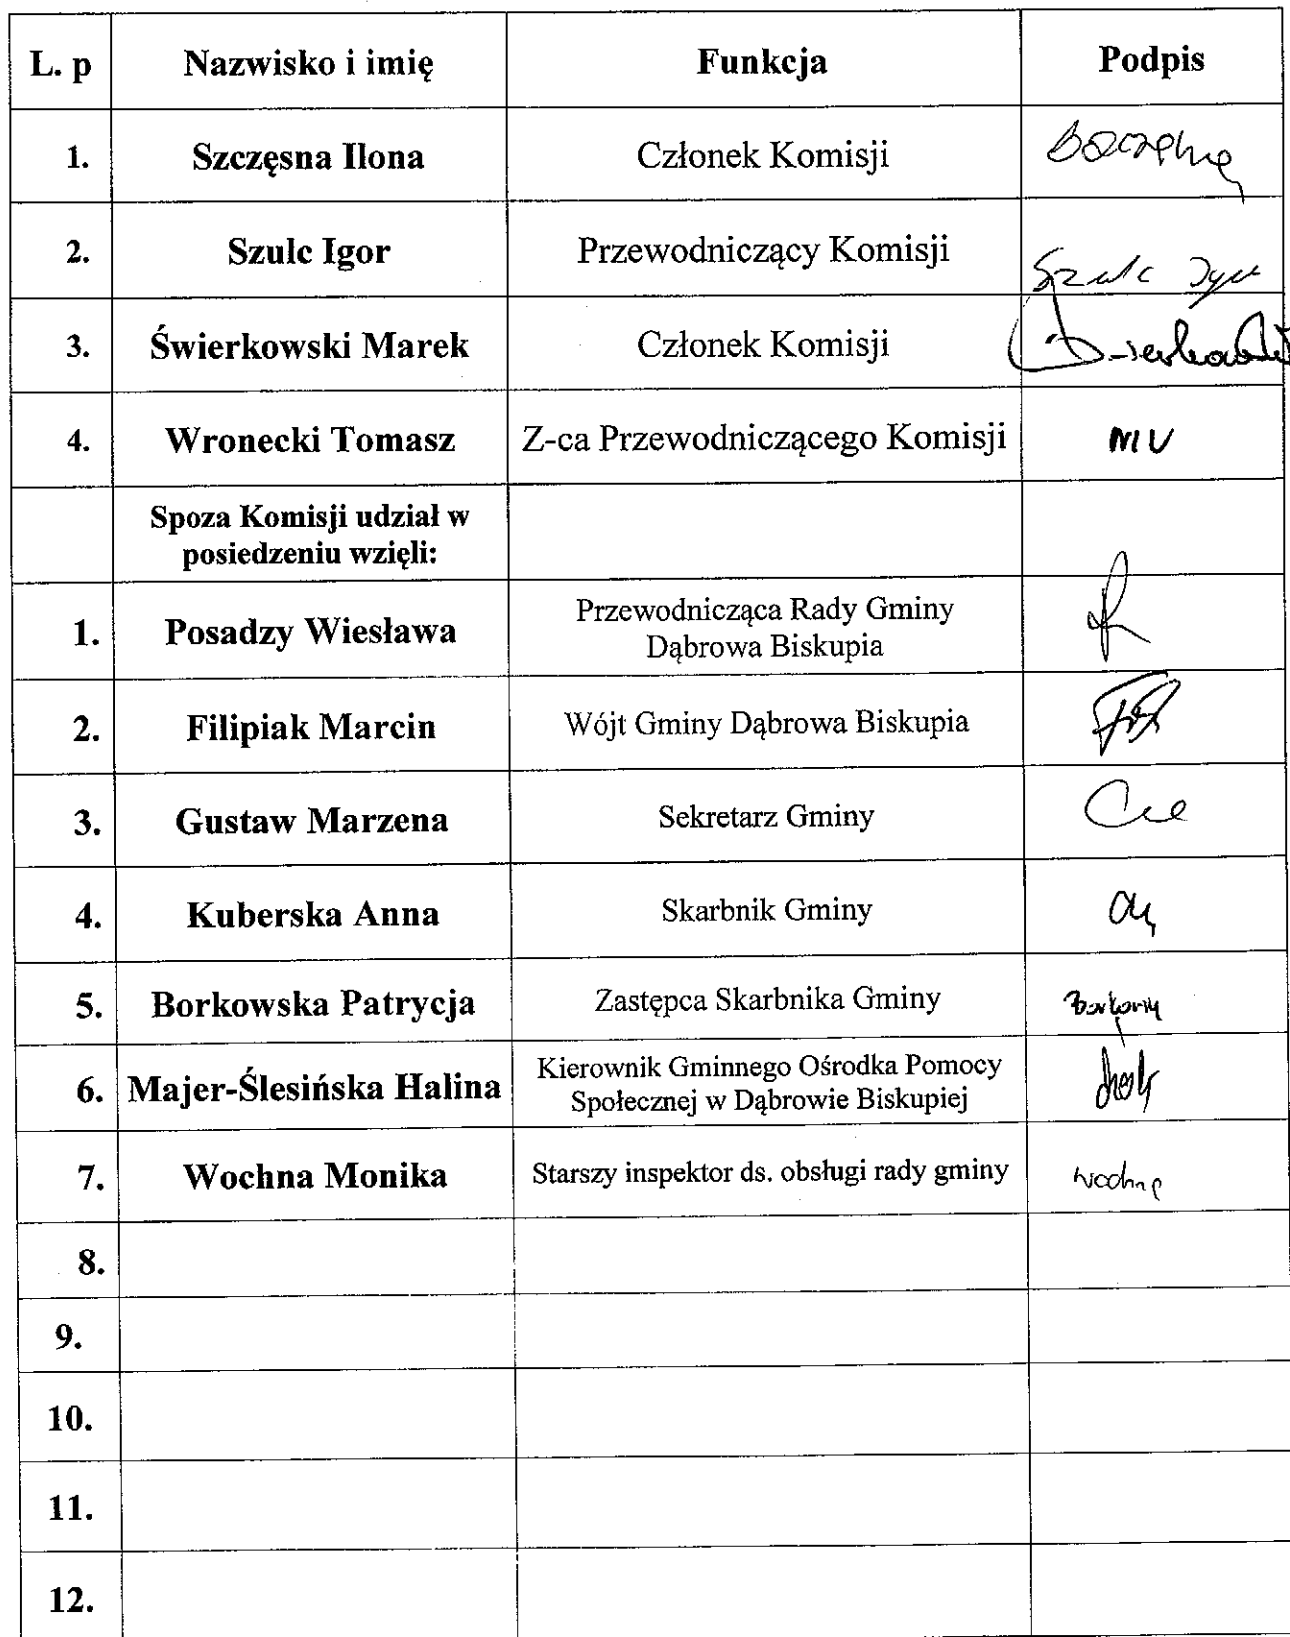 L. p Nazwisko i imię Funkcja Podpis
1. Szczęsna Ilona Członek Komisji
2. Szulc Igor Przewodniczący Komisji Szulc Igor
3. Świerkowski Marek Członek Komisji
4. Wronecki Tomasz Z-ca Przewodniczącego Komisji
Spoza Komisji udział w
posiedzeniu wzięli:
1. Posadzy Wiesława Przewodnicząca Rady Gminy
Dąbrowa Biskupia
2. Filipiak Marcin Wójt Gminy Dąbrowa Biskupia
3. Gustaw Marzena Sekretarz Gminy
4. Kuberska Anna Skarbnik Gminy
5. Borkowska Patrycja Zastępca Skarbnika Gminy
6. Majer-Ślesińska Halina Kierownik Gminnego Ośrodka Pomocy
Społecznej w Dąbrowie Biskupiej
7. Wochna Monika Starszy inspektor ds. obsługi rady gminy Wochna
8.
9.
10.
11.
12.